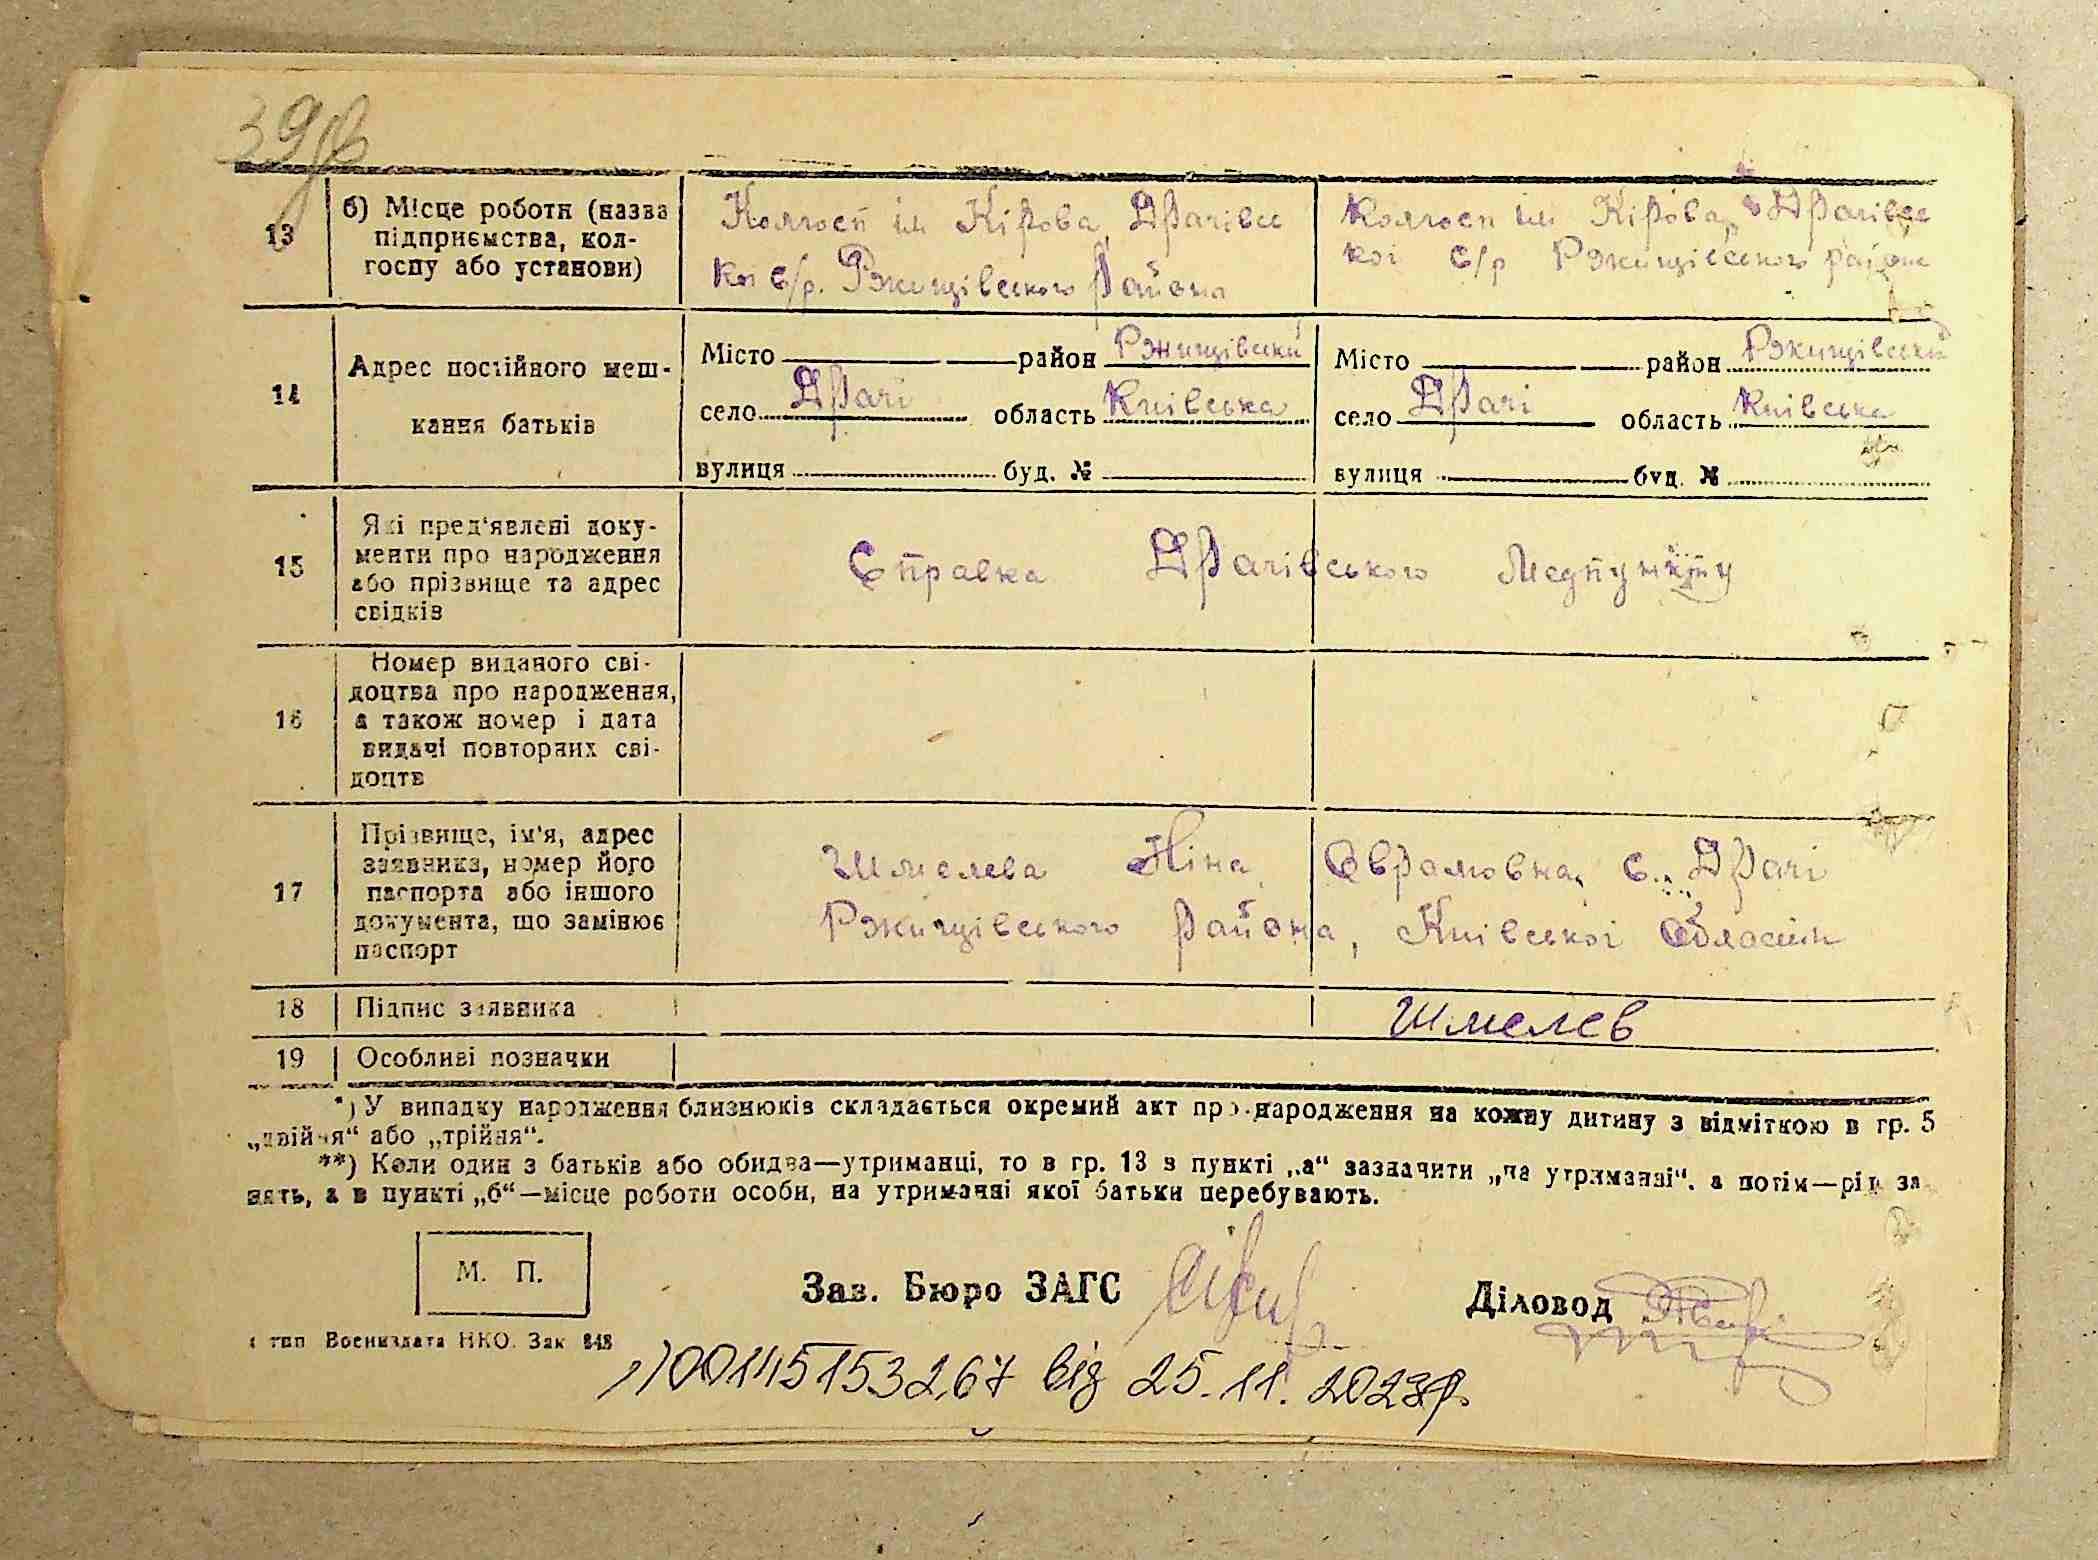 39 зв
13 б) Місце роботи (назва підприємства, колгоспу або установи)
Колгосп ім Кірова Драчівс
кої с/р. Ржищівського района
Колгосп ім Кірова, Драчівс
кої с/р Ржищівського района
14 Адрес постійного меш-
кання батьків
Місто район Ржищівский
село Драчі область Київська
вулиця буд. №
Місто район Ржищівский
село Драчі область Київська
вулиця буд. №
15 Які пред'явлені доку-
менти про народження
або прізвище та адрес
свідків
Справка Драчівського Медпункту
16 Номер виданого сві-
доцтва про народження,
а також номер і дата
видачі повторних сві-
доцтв
17 Прізвище, ім'я, адрес
заявника, номер його
паспорта або іншого
документа, що замінює
паспорт
Шмелева Ніна Аврамовна, с. Драчі
Ржищівського района, Київської області
18 Підпис заявника Шмелев
19 Особливі позначки
*) У випадку народження близнюків складається окремий акт про народження на кожну дитину з відміткою в гр. 5
„двійня“ або „трійня“.
**) Коли один з батьків або обидва—утриманці, то в гр. 13 в пункті „а“ зазначити „на утриманні“, а потім—рід за
нять, а в пункті „б“—місце роботи особи, на утриманні якої батьки перебувають.
М. П.
Зав. Бюро ЗАГС
Діловод
1 тип Воениздата НКО. Зак 848
1) 00145153267 від 25.11.2023р.